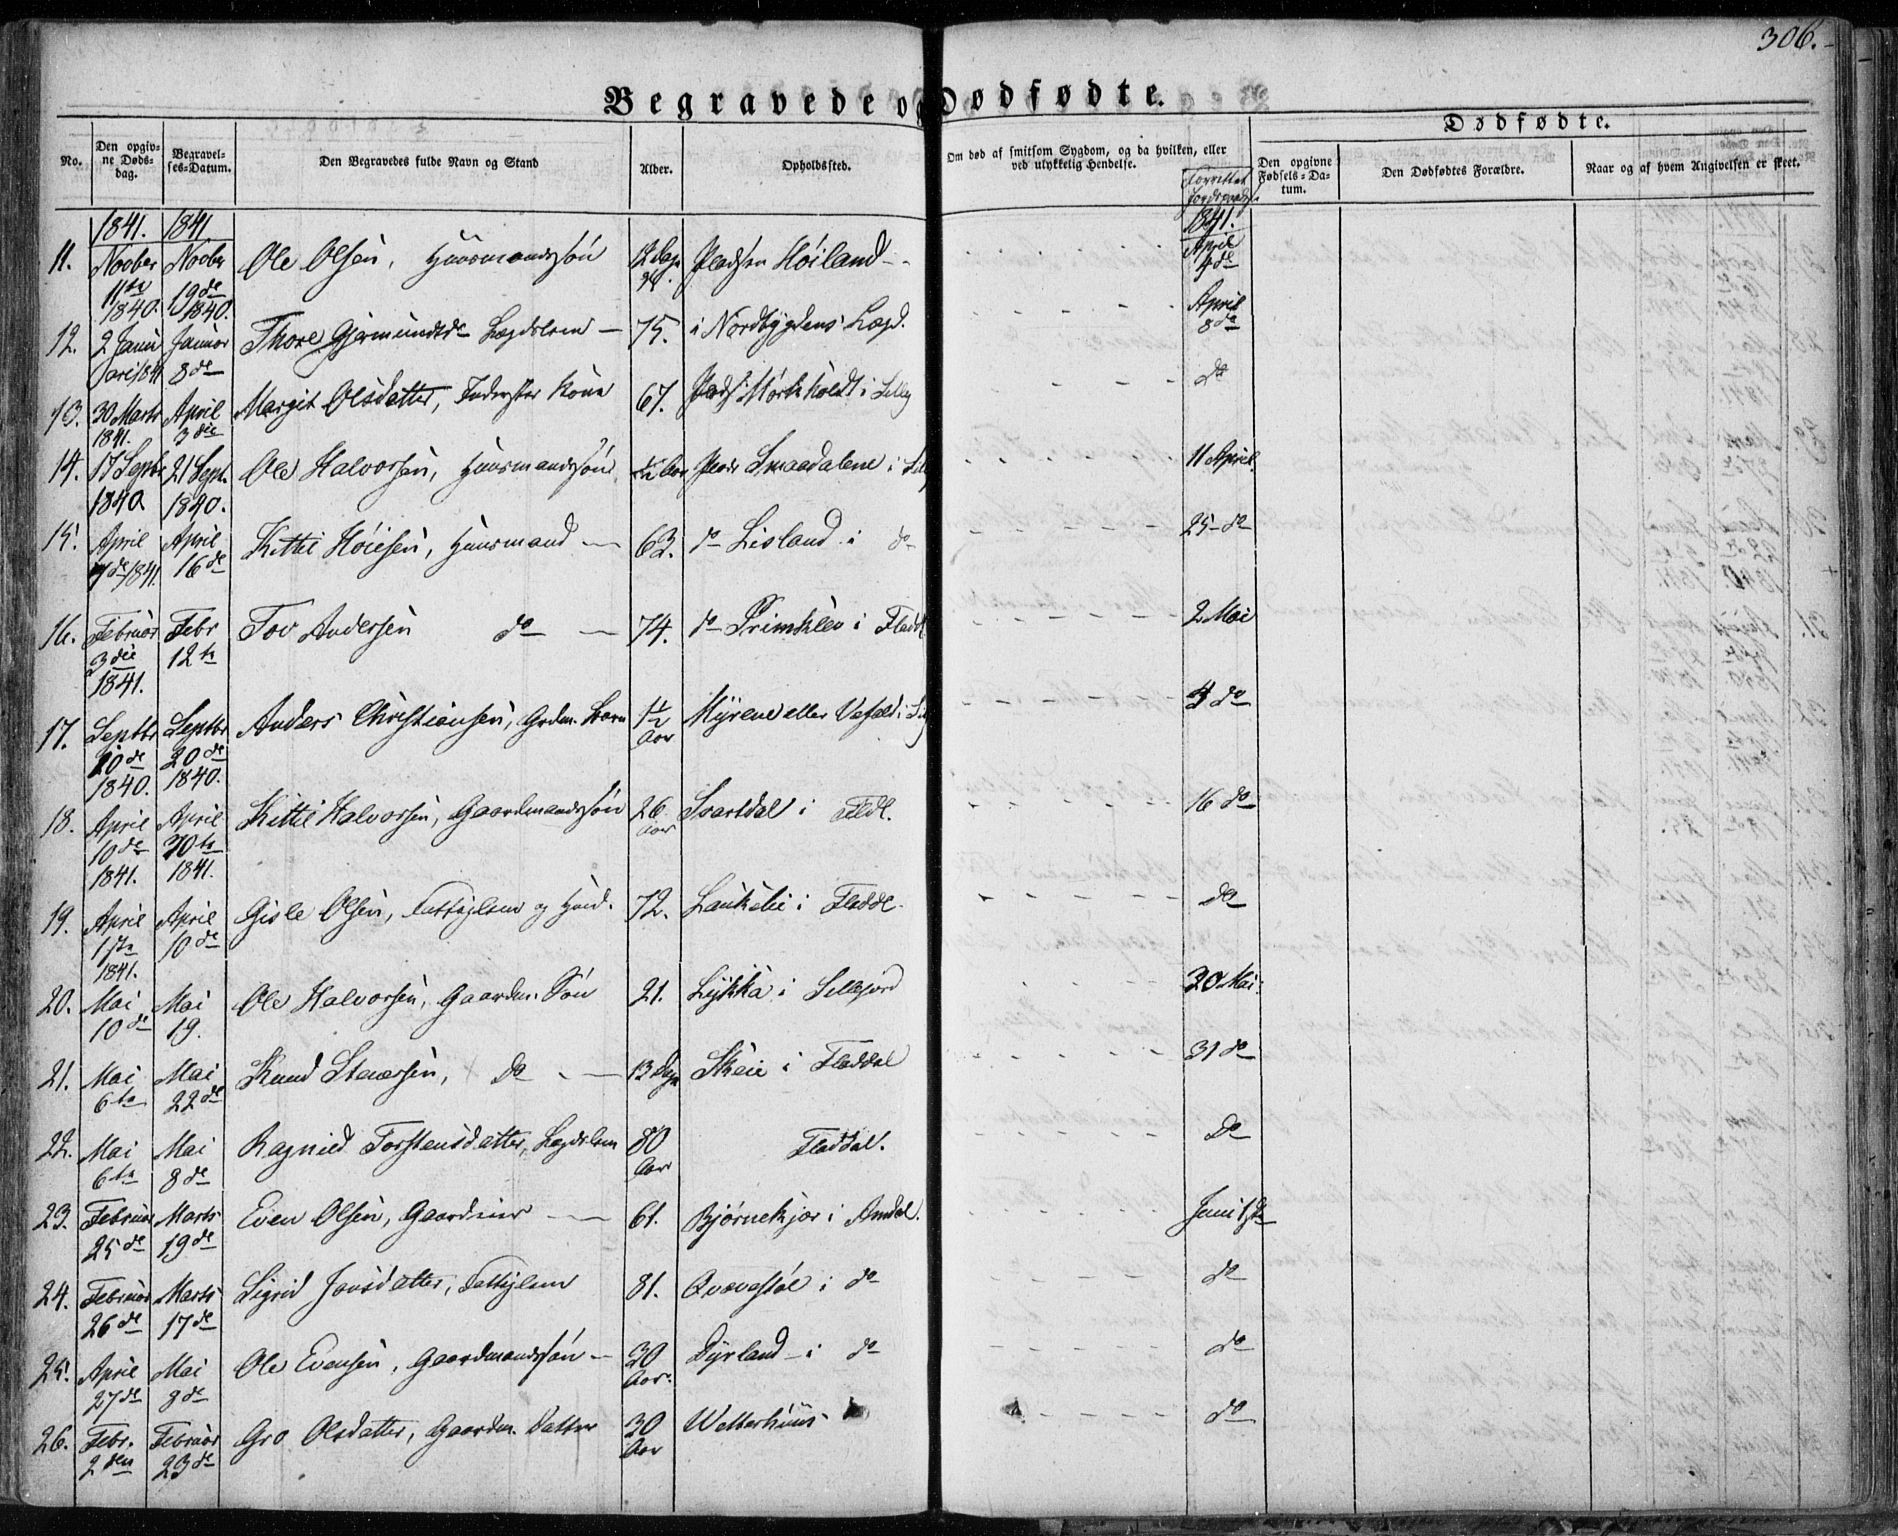 306.
Begravede og Dødfødte.
Dødfødte.
No.
Den opgiv-
ne Døds-
dag.
Begravel-
ses-Datum.
Den Begravedes fulde Navn og Stand
Alder.
Opholdssted.
Om død af smitsom Sygdom, og da hvilken, eller
ved ulykkelig Hendelse.
Forrettet
Jordspaak.
Den opgivne
Fødsels-Da-
tum.
Den Dødfødtes Forældre.
Naar og af hvem Angivelsen er skeet.
1841. 1841 1841.
11. Novber 11te 1840. Novbr 19de 1840. Ole Olsen, Huusmandssøn 12 Dage Pladsen Höiland - - April 4de
12. 2 Janu ari 1841 Januar 8de Thore Gjermundsdr Lægdslem — 75. i Nordbygdens Lægd. April 8de
13. 30 Marts 1841. April 3die Margit Olsdatter, Inderster Kone 67. Pads: Mørkholdt i Selley do
14. 17 Septbr 1840 21 Sept. 1840. Ole Halvorsen, Huusmandssøn 1/2 Aar Plads Smaadalene i 11 April
15. April 7de 1841. April 16de Kittil Höiesen, Huusmand — 63. do Lisland i do 25 - do
16. Februar 3die 1841. Febr 12te Tov Andersen do — 74. do Primklev i Fladd. 2 Mai
17. Septbr 10de 1840. Septbr 20de 1840. Anders Christiansen, Grdm. Barn 1 1/2 Aar Myrene eller Vefald i 4 do
18. April 10de 1841. April 30te 1841. Kittil Halvorsen, Gaardmandssøn 26 Aar Svartdal i Fldl. 16 do
19. April 1ste 1841. April 10de Gisle Olsen, Fattiglem og Huusd. 72. Laukelie i Fladdl. do
20. Mai 10de Mai 19. Ole Halvorsen, Gaardm. Søn 21. Lykkja i Sillejord 20 Mai.
21. Mai 6te Mai 22de Knud Stenersen, do - — 13 Dage Skeie i Fladdal 31 do
22. Mai 6te Mai 8de Ragnild Torstensdatter, Lægdslem 80 Aar Fladdal. do
23. Februar 25de Marts 19de Even Olsen, Gaardmand — 61. Bjørnekjær i Amdal. Juni 1ste
24. Februar 26de Marts 17de Sigrid Jonsdatter, Fattiglem 81. Qvævestöl i do do
25. April 27de Mai 8de Ole Evensen, Gaardmandssøn - 30 Aar. Dyrland - i do do
26. Febr. 2den Februar 23de Gro Olsdatter, Gaardm. Datter 30 Aar Wetterhuus do